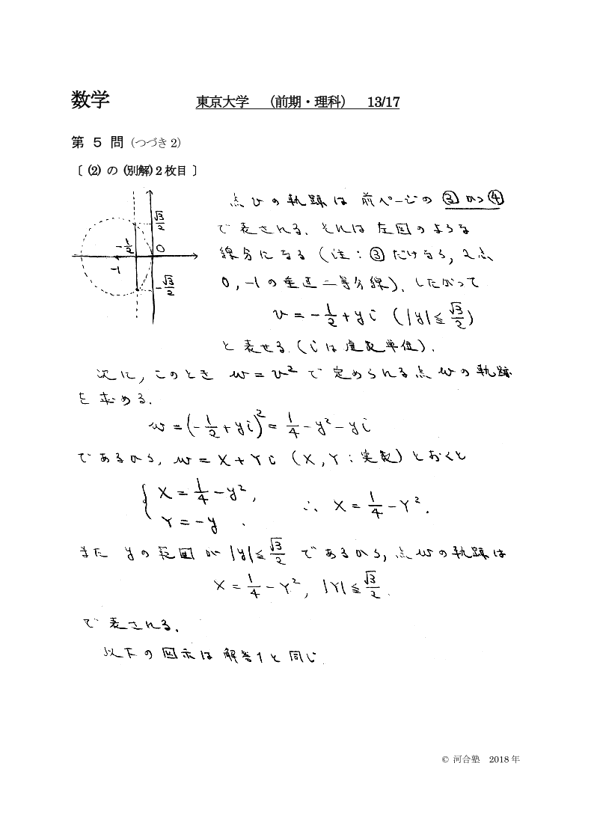 数学 東京大学 (前期・理科) 13/17
第 5 問 (つづき2)
〔 (2) の (別解) 2枚目 〕
点 v の軌跡は 前ページの ③ かつ ④
で表される. それは左図のような
線分になる (注: ③だけなら, 2点
0, -1 の垂直二等分線). したがって
v = -1/2 + yi (|y| ≦ √3/2)
と表せる. (i は虚数単位).
√3/2
-1/2 0
-1
-√3/2
次に, このとき w = v² で定められる点 w の軌跡
を求める.
w = (-1/2 + yi)² = 1/4 - y² - yi
であるから, w = X + Yi (X, Y : 実数) とおくと
{ X = 1/4 - y², Y = -y . ∴ X = 1/4 - Y².
また y の範囲が |y| ≦ √3/2 であるから, 点 w の軌跡は
X = 1/4 - Y², |Y| ≦ √3/2.
で表される.
以下の図示は 解答1と同じ
© 河合塾 2018 年